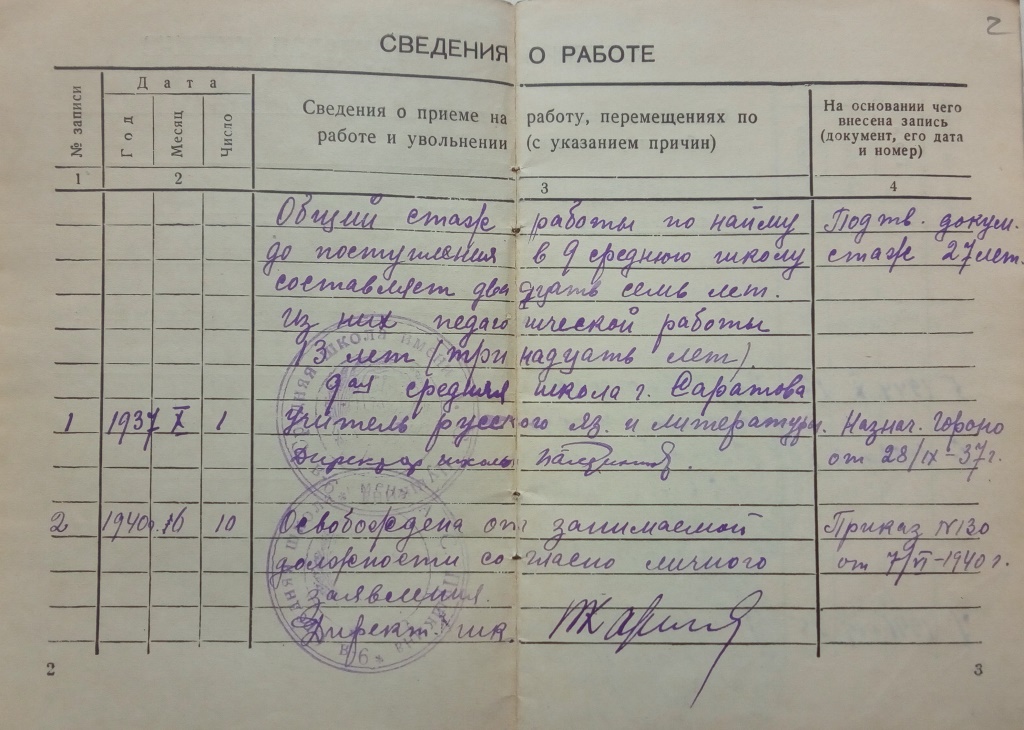 2
СВЕДЕНИЯ О РАБОТЕ
№ записи
Дата
Год
Месяц
Число
Сведения о приеме на работу, перемещениях по
работе и увольнении (с указанием причин)
На основании чего
внесена запись
(документ, его дата
и номер)
1 2 3 4
Общий стаж работы по найму Подтв. докум.
до поступления в 9 среднюю школу стаж 27 лет.
составляет двадцать семь лет.
Из них педагогической работы
13 лет (тринадцать лет)
9ая средняя школа г. Саратова
1 1937 X 1 Учитель русского яз. и литературы. Назнач. Гороно
Директор школы от 28/IX-37г.
2 1940г. 10 Освобождена от занимаемой Приказ №130
должности согласно личного от 7/VI-1940г.
заявления.
Директ. шк.
2 3